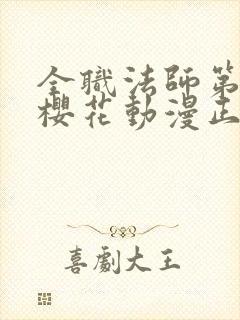 全職法師第
櫻花動漫正
喜劇大王